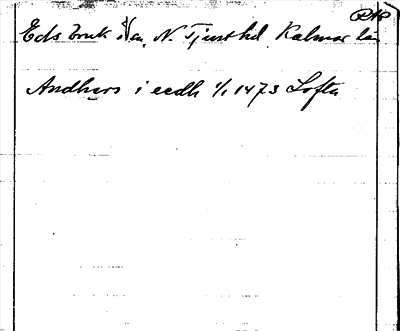 Eds bruk sn. N. Tjust hd. Kalmar län
Andhers i eedh 1/1 1473 Lofta